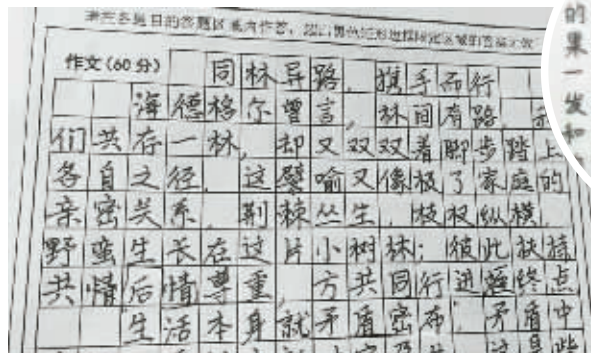 请在各题目的答题区域内作答,超出黑色矩形边框限定区域的答案无效
作文(60分)
同林异路,携手而行
海德格尔曾言,林间有路,
们共存一林,却又双双着脚步踏上
各自之径,这譬喻又像极了家庭的
亲密关系,荆棘丛生,枝杈纵横,
野蛮生长在这片小树林;彼此扶持
共情后情尊重,方共同行进终点
生活本身就矛盾密布,矛盾中
的
果
一
发
和